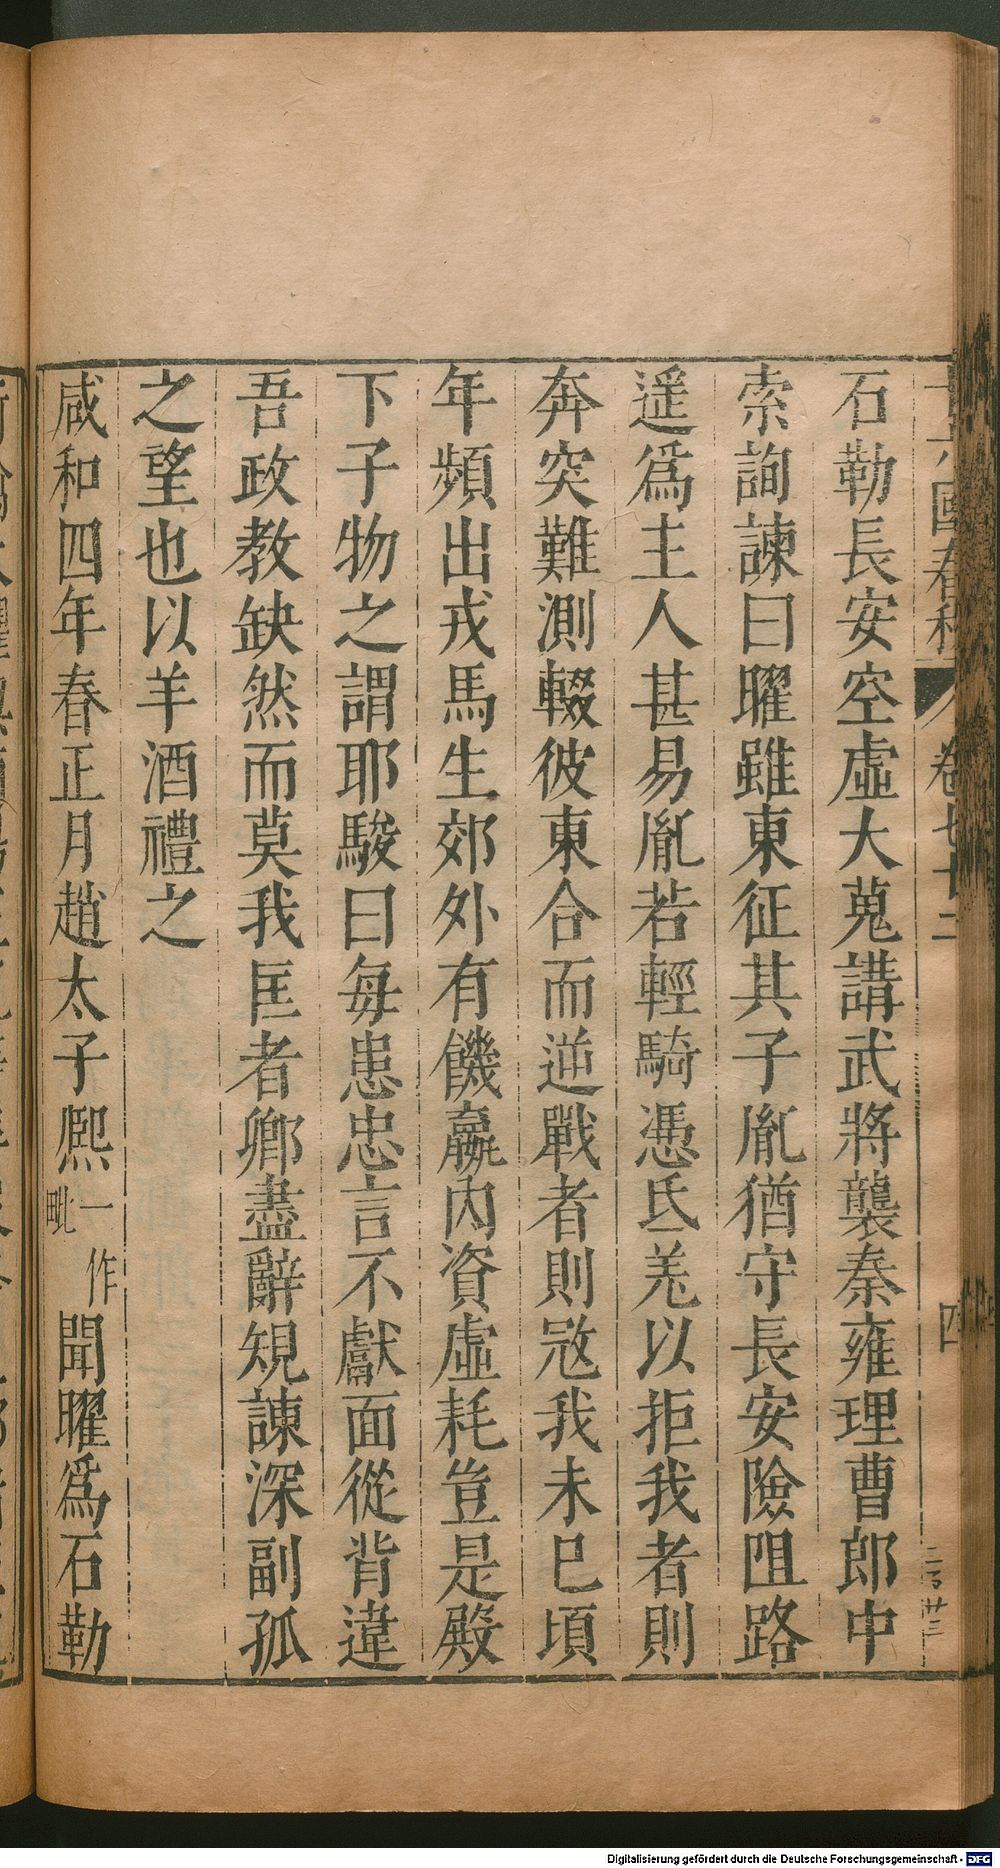 國春秋 卷七十二 四
石勒長安空虛大蒐講武將襲秦雍理曹郎中
索詢諫曰曜雖東征其子胤猶守長安險阻路
遥爲主人甚易胤若輕騎憑氐羌以拒我者則
奔突難測輟彼東合而逆戰者則𡨥我未已頃
年頻出戎馬生郊外有饑羸內資虛耗豈是殿
下子物之謂耶駿曰每患忠言不獻面從背違
吾政教缺然而莫我匡者卿盡辭規諫深副孤
之望也以羊酒禮之
咸和四年春正月趙太子熙一作毗聞曜爲石勒
Digitalisierung gefördert durch die Deutsche Forschungsgemeinschaft - DFG